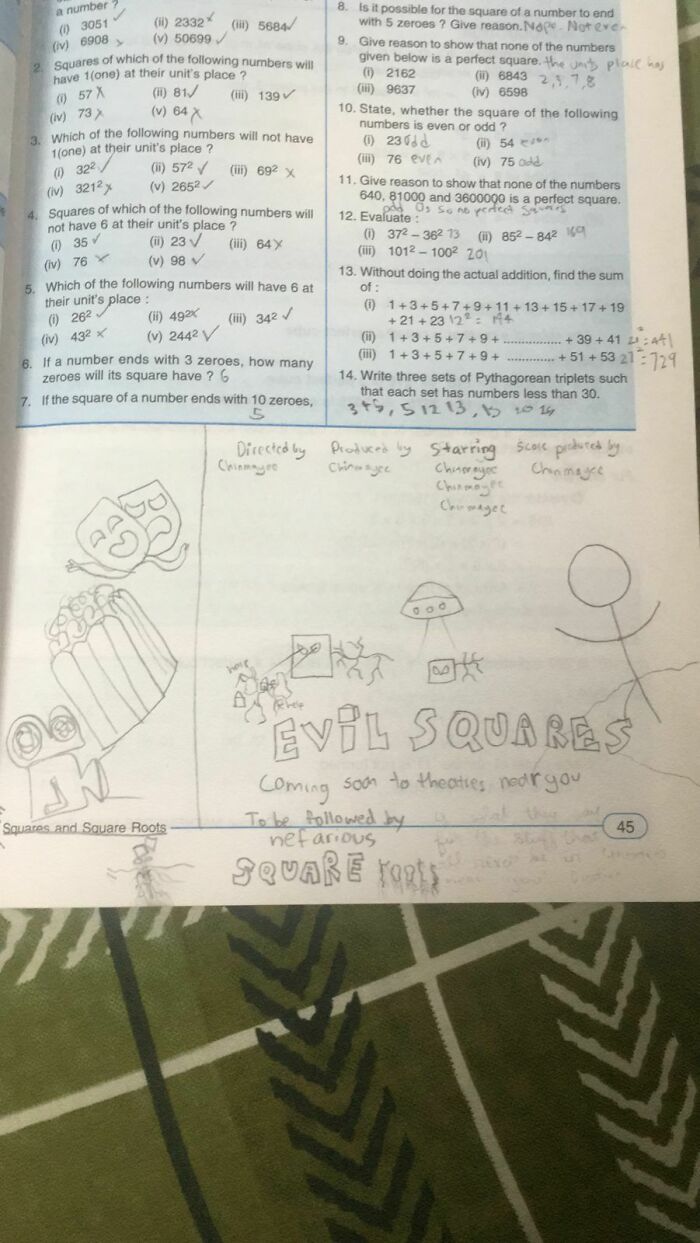 a number ?
(i) 3051 ✓ (ii) 2332 x (iii) 5684 ✓
(iv) 6908 x (v) 50699 ✓
2. Squares of which of the following numbers will
have 1(one) at their unit's place ?
(i) 57 x (ii) 81 ✓ (iii) 139 ✓
(iv) 73 x (v) 64 x
3. Which of the following numbers will not have
1(one) at their unit's place ?
(i) 32² ✓ (ii) 57² ✓ (iii) 69² x
(iv) 321² x (v) 265² ✓
4. Squares of which of the following numbers will
not have 6 at their unit's place ?
(i) 35 ✓ (ii) 23 ✓ (iii) 64 x
(iv) 76 x (v) 98 ✓
5. Which of the following numbers will have 6 at
their unit's place :
(i) 26² ✓ (ii) 49² x (iii) 34² ✓
(iv) 43² x (v) 244² ✓
6. If a number ends with 3 zeroes, how many
zeroes will its square have ? 6
7. If the square of a number ends with 10 zeroes,
5
8. Is it possible for the square of a number to end
with 5 zeroes ? Give reason. Nope. Not even
9. Give reason to show that none of the numbers
given below is a perfect square. the units place has
(i) 2162 (ii) 6843 2, 3, 7, 8
(iii) 9637 (iv) 6598
10. State, whether the square of the following
numbers is even or odd ?
(i) 23 odd (ii) 54 even
(iii) 76 even (iv) 75 odd
11. Give reason to show that none of the numbers
640, 81000 and 3600000 is a perfect square.
odd 0s so no perfect squares
12. Evaluate :
(i) 37² – 36² 73 (ii) 85² – 84² 169
(iii) 101² – 100² 201
13. Without doing the actual addition, find the sum
of :
(i) 1 + 3 + 5 + 7 + 9 + 11 + 13 + 15 + 17 + 19
+ 21 + 23 12² = 144
(ii) 1 + 3 + 5 + 7 + 9 + ................ + 39 + 41 21² = 441
(iii) 1 + 3 + 5 + 7 + 9 + ............. + 51 + 53 27² = 729
14. Write three sets of Pythagorean triplets such
that each set has numbers less than 30.
3 4 5, 5 12 13, 15 20 25
Directed by Produced by Starring Score produced by
Chinmayee Chinmayee Chinmayee Chinmayee
Chinmayee
Chinmayee
help
EVIL SQUARES
Coming soon to theatres near you
To be followed by
nefarious
SQUARE roots
Squares and Square Roots
45